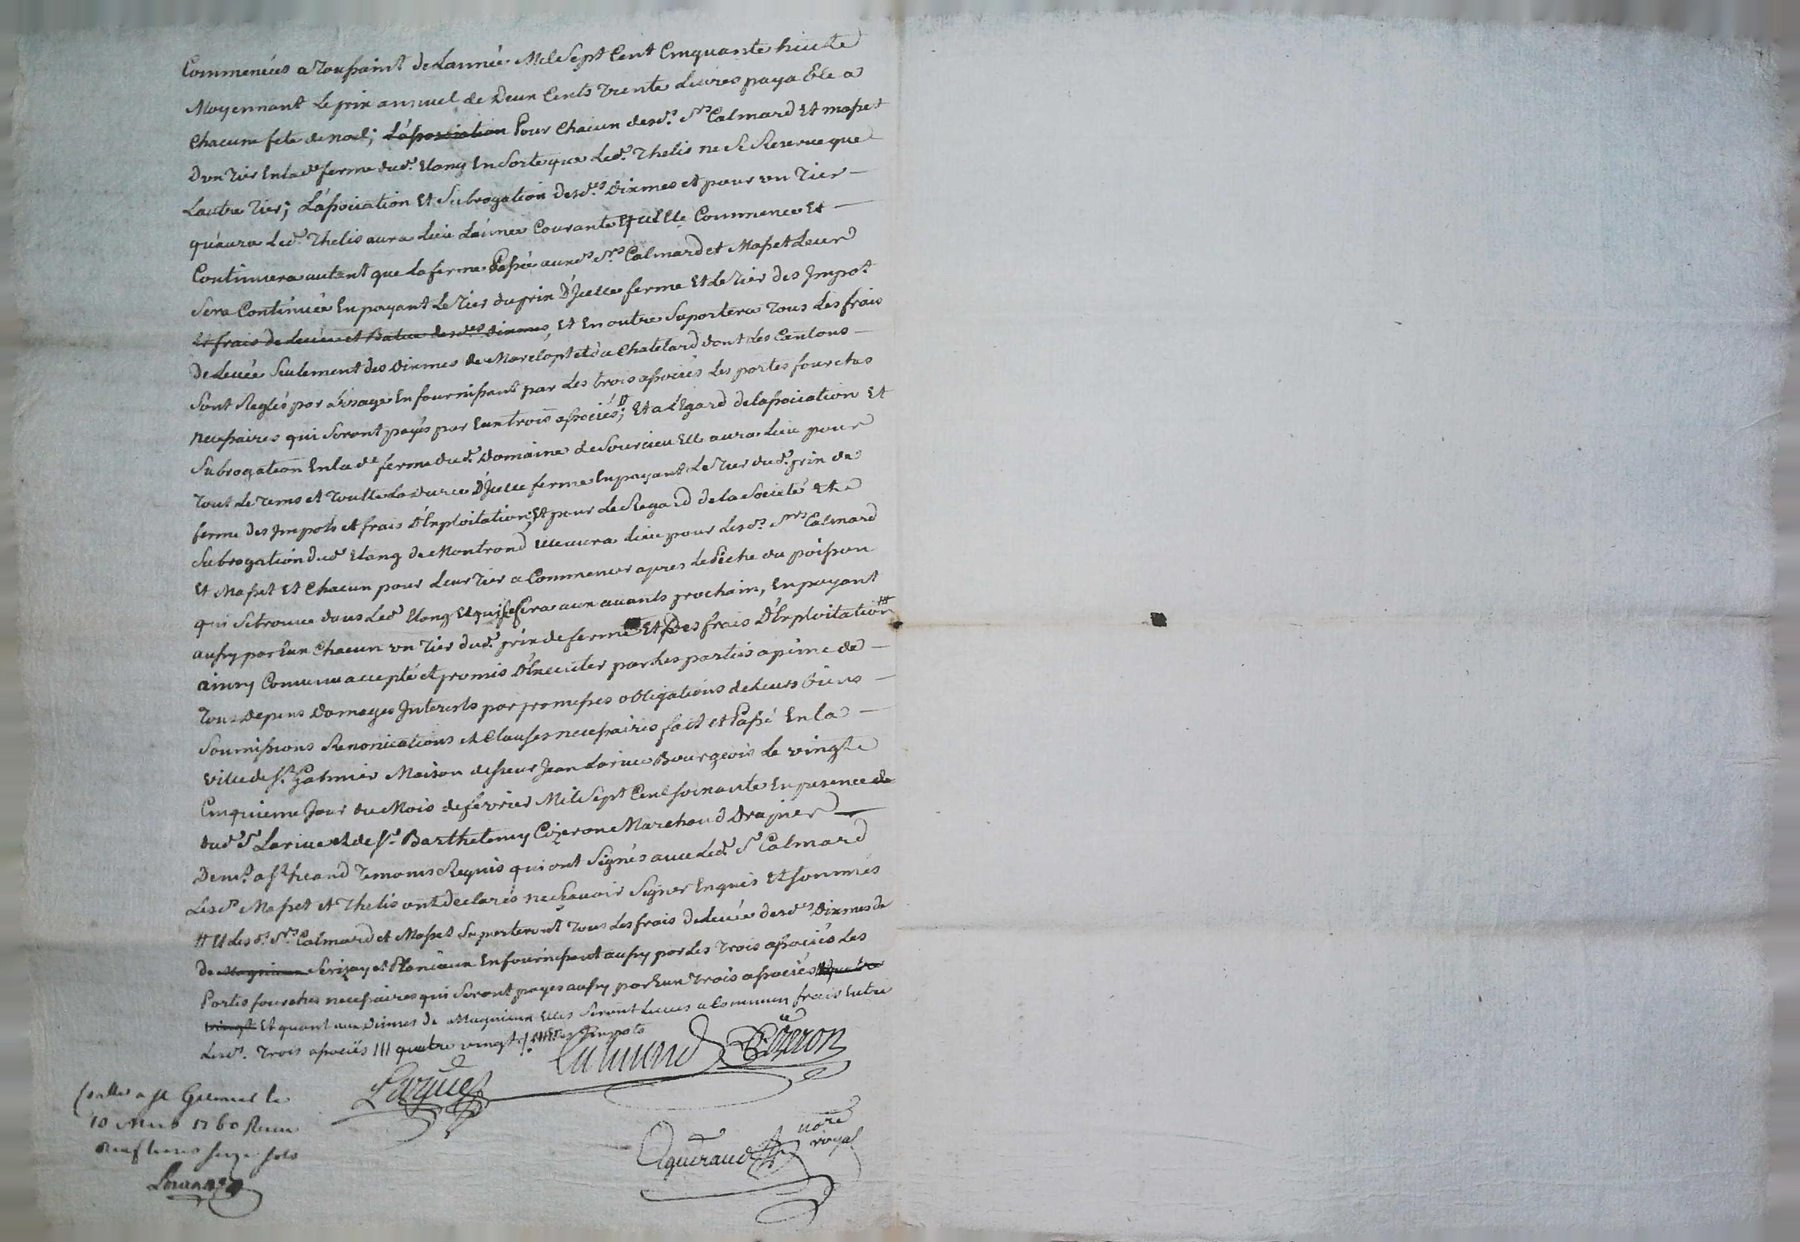 Commencées a Toussaint de Lannée Mile Sept Cent Cinquante huite
Moyennant Le prix annuel de Deux Cents Trente Livres payable a
Chacune fete de noel; L'association Pour Chacun desd. Srs Calmard Et masset
D'un Tier En lade ferme dud. Etang En Sorte que Led. Thelis ne Se Reserve que
Lautre Tier; L'association Et Subrogation desd.es Dixmes et pour un Tier —
qu'aura Led. Thelis aura Lieu L'année Courante Et Elle Commence Et —
Continuera autant que la ferme Passée auxd. Srs Calmard et Masset Leur
Sera Continuée En payant Le Tier du prix D'Jcelle ferme Et Le Tier des Jmpot
Et frais de Levée et Batue desd.es Dixmes, Et En outre Suportera Tous Les frais
De Levée Seulement des Dixmes de Marclopt et du Chatelard dont Les Cantons —
Sont Reglés par En fournissant par Les trois associés Les portes fourches
necessaires qui Seront payés par Eux trois associés; Et a L'Egard de lassociation Et
Subrogation En lade ferme dud. Domaine de Sourcieu Elle aura Lieu pour
Tout Le Tems et Toutte La durée D'Jcelle ferme En payant Le Tier dud. prix de
ferme des Jmpots et frais D'Exploitation; Et pour Le Regard de la Societé Et
Subrogation dud. Etang de Montrond Elle aura Lieu pour Lesd. Srs Calmard
Et Masset Et Chacun pour Leur Tier a Commencer apres La Pêche du poisson
qui Se trouve dans Led. Etang Et qui Se fera aux avants prochain, En payant
aussy par Eux Chacun un Tier dud. prix de ferme Et Des frais D'Exploitation #
ainsy Convenu accepté et promis D'Executer par Les parties a peine de —
Tous Depens Domages Jnterests par promesses obligations de Leurs biens —
Soumissions Renonciations et Clauses necessaires fait et Passé En la —
ville de St. Galmier Maison de sieur Jean Larive Bourgeois Le vingte
Cinquieme Jour du Mois de fevrier Mil Sept Cent soixante En presence de
dud. Sr Larive et de Sr. Barthelemy Cizeron Marchand Drapier —
Demt. a St. heand Temoins Requis qui ont Signés avec Led. Sr Calmard
Lesd. Masset et Thelis ont declarés ne Scavoir Signer Enquis Et sommés
# Et Les d. Srs Calmard et Masset Suporteront Tous Les frais de Levée desd.es Dixmes de
de Magnieux Serizay et En fournissant aussy par Les Trois associés Les
Portes fourches necessaires qui Seront payés aussy par Eux Trois associés quatre
vingt Et quant aux Dixmes de Magnieux Elles Seront Levées a Commun frais Entre
Lesd. Trois associés III quatre vingt Jmpots
Calmard BCizeron
Larive
Con.lle a St Galmier le
10 Mars 1760 Recu
neuf livres seize sols
nore
royal